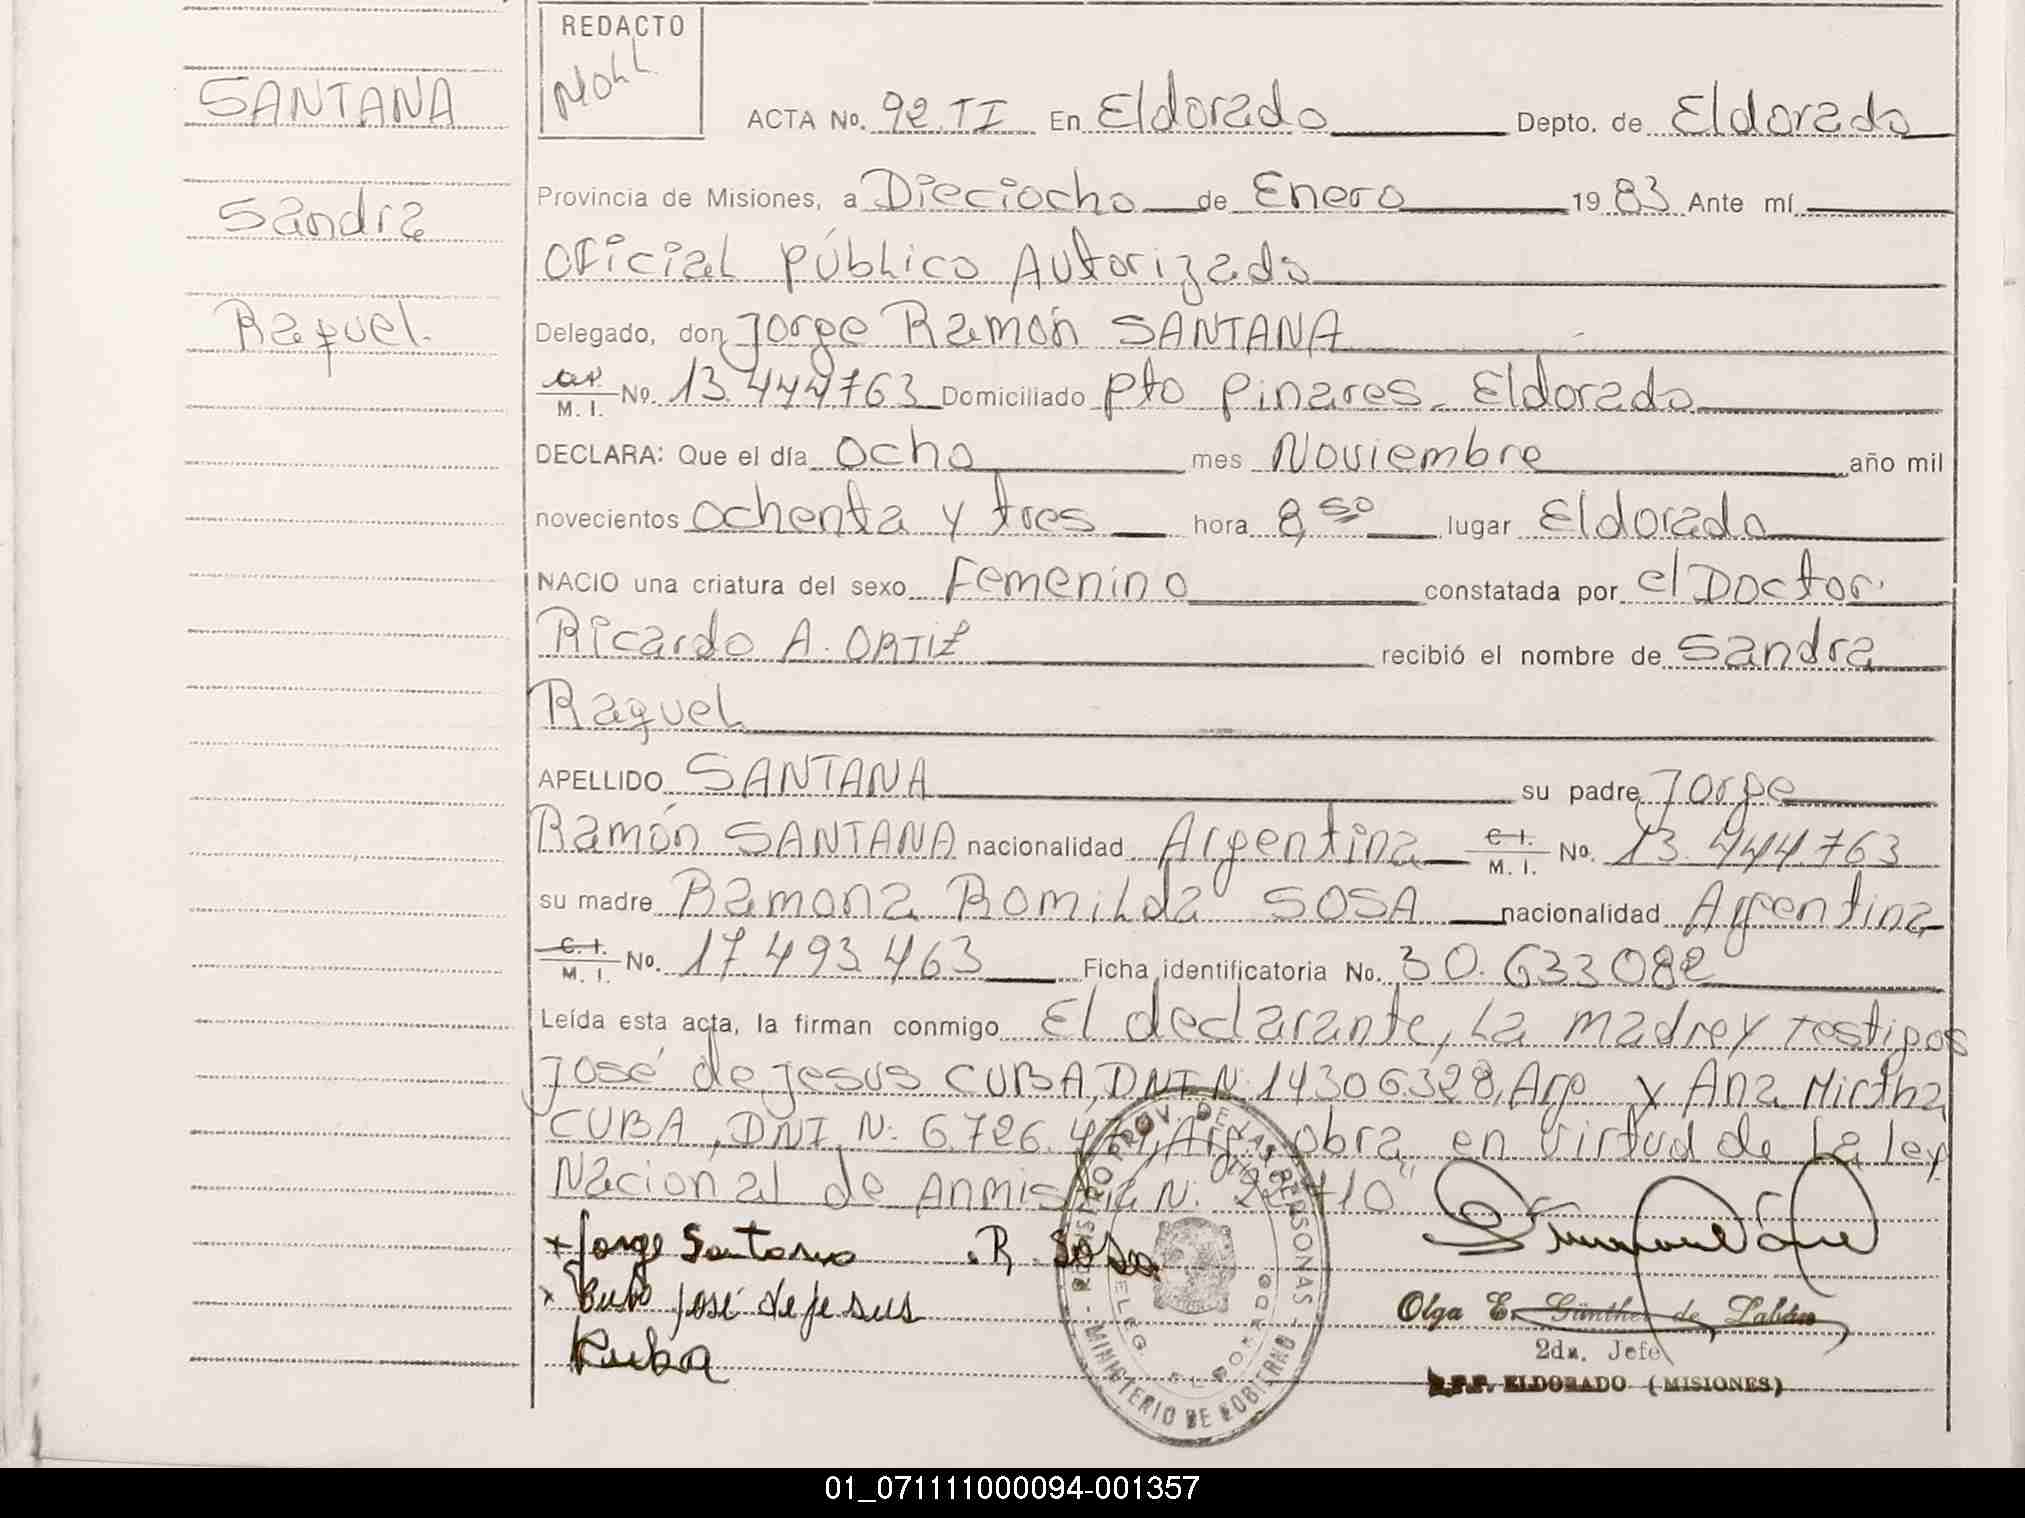 REDACTO
Mohl
SANTANA
Sandra
Raquel.
ACTA No. 92.TI En Eldorado Depto. de Eldorado
Provincia de Misiones, a Dieciocho de Enero 1983 Ante mí
Oficial público Autorizado
Delegado, don Jorge Ramón SANTANA
M. I. No. 13.444763 Domiciliado pto pinares - Eldorado
DECLARA: Que el día ocho mes Noviembre año mil
novecientos ochenta y tres hora 8,50 lugar Eldorado
NACIO una criatura del sexo Femenino constatada por el Doctor.
Ricardo A. ORTIZ recibió el nombre de Sandra
Raquel
APELLIDO SANTANA su padre Jorge
Ramón SANTANA nacionalidad Argentina C.I. M. I. No. 13.444.763
su madre Ramona Romilda SOSA nacionalidad Argentina
C.I. M. I. No. 17.493.463 Ficha identificatoria No. 30.633082
Leída esta acta, la firman conmigo El declarante, La madre y testigos
José de Jesus CUBA, DNI N: 14306328, Arg. y Ana Mirtha
CUBA, DNI. N: 6.726. Arg. obra en virtud de La ley
Nacional de anmistia N: 22410"
+ Jorge Santana . R Sosa
x Cubo José de jesus
Kuba
REGISTRO PROV. DE LAS PERSONAS
DELEG. ELDORADO
MINISTERIO DE GOBIERNO
Olga E. Günther de Labán
2da. Jefe
ELDORADO (MISIONES)
01_071111000094-001357